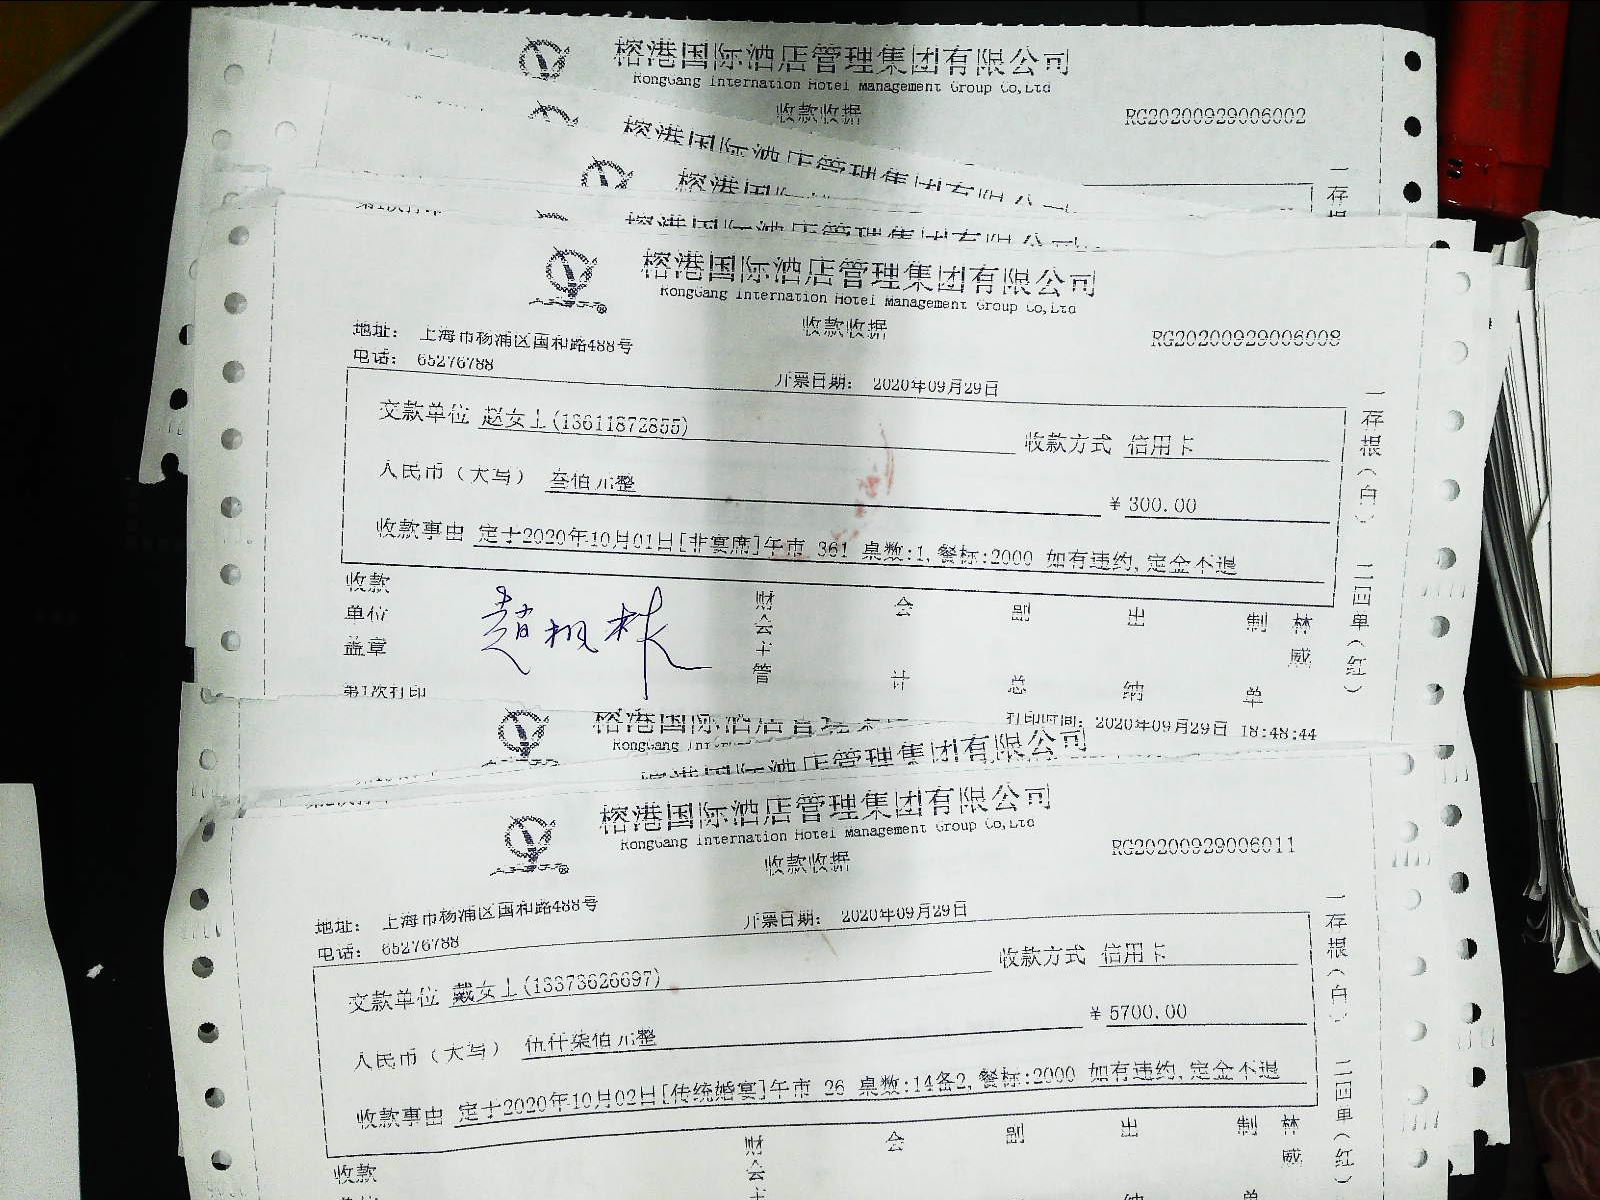 榕港国际酒店管理集团有限公司
RongGang International Hotel Management Group Co,Ltd
收款收据
RG20200929006002
一存根
榕港国际酒店管理集团有限公司
榕港国际酒店
榕港国际酒店管理集团有限公司
第1次打印
榕港国际酒店管理集团有限公司
RongGang International Hotel Management Group Co,Ltd
收款收据
RG20200929006008
地址: 上海市杨浦区国和路488号
电话: 65276788
开票日期: 2020年09月29日
交款单位 赵女士(13611872855)
收款方式 信用卡
人民币(大写) 叁佰元整
¥ 300.00
收款事由 定于2020年10月01日[非宴席]午市 361 桌数:1,餐标:2000 如有违约,定金不退
一存根(白) 二回单(红)
收款单位盖章
赵枫林
财会主管
会计
副总
出纳
制单
林威
第1次打印
打印时间: 2020年09月29日 18:48:44
榕港国际酒店管理集团
RongGang International
榕港国际酒店管理集团有限公司
榕港国际酒店管理集团有限公司
RongGang International Hotel Management Group Co,Ltd
收款收据
RG20200929006011
地址: 上海市杨浦区国和路488号
电话: 65276788
开票日期: 2020年09月29日
交款单位 戴女士(13373626697)
收款方式 信用卡
人民币(大写) 伍仟柒佰元整
¥ 5700.00
收款事由 定于2020年10月02日[传统婚宴]午市 26 桌数:14备2,餐标:2000 如有违约,定金不退
一存根(白) 二回单(红)
收款
财会主
会
副
出纳
制单
林威